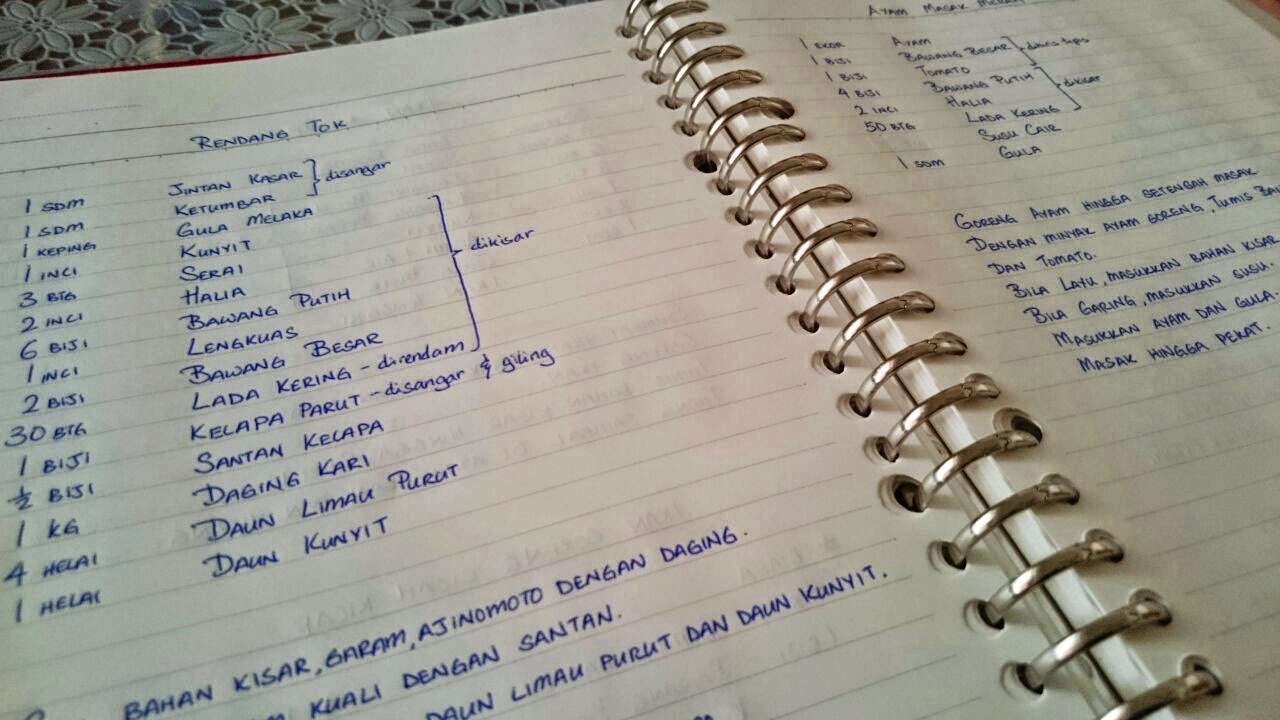 RENDANG TOK
1 SDM JINTAN KASAR } disangar
1 SDM KETUMBAR
1 KEPING GULA MELAKA
1 INCI KUNYIT
3 BTG SERAI } dikisar
2 INCI HALIA
6 BIJI BAWANG PUTIH
1 INCI LENGKUAS
2 BIJI BAWANG BESAR
30 BTG LADA KERING - direndam
1 BIJI KELAPA PARUT - disangar & giling
½ BIJI SANTAN KELAPA
1 KG DAGING KARI
4 HELAI DAUN LIMAU PURUT
1 HELAI DAUN KUNYIT
BAHAN KISAR, GARAM, AJINOMOTO DENGAN DAGING.
KUALI DENGAN SANTAN.
DAUN LIMAU PURUT DAN DAUN KUNYIT.
AYAM MASAK MERAH
1 EKOR AYAM
1 BIJI BAWANG BESAR } dihiris tipis
1 BIJI TOMATO
4 BIJI BAWANG PUTIH } dikisar
2 INCI HALIA
50 BTG LADA KERING
SUSU CAIR
1 SDM GULA
GORENG AYAM HINGGA SETENGAH MASAK
DENGAN MINYAK AYAM GORENG, TUMIS
DAN TOMATO.
BILA LAYU, MASUKKAN BAHAN KISAR
BILA GARING, MASUKKAN SUSU.
MASUKKAN AYAM DAN GULA.
MASAK HINGGA PEKAT.